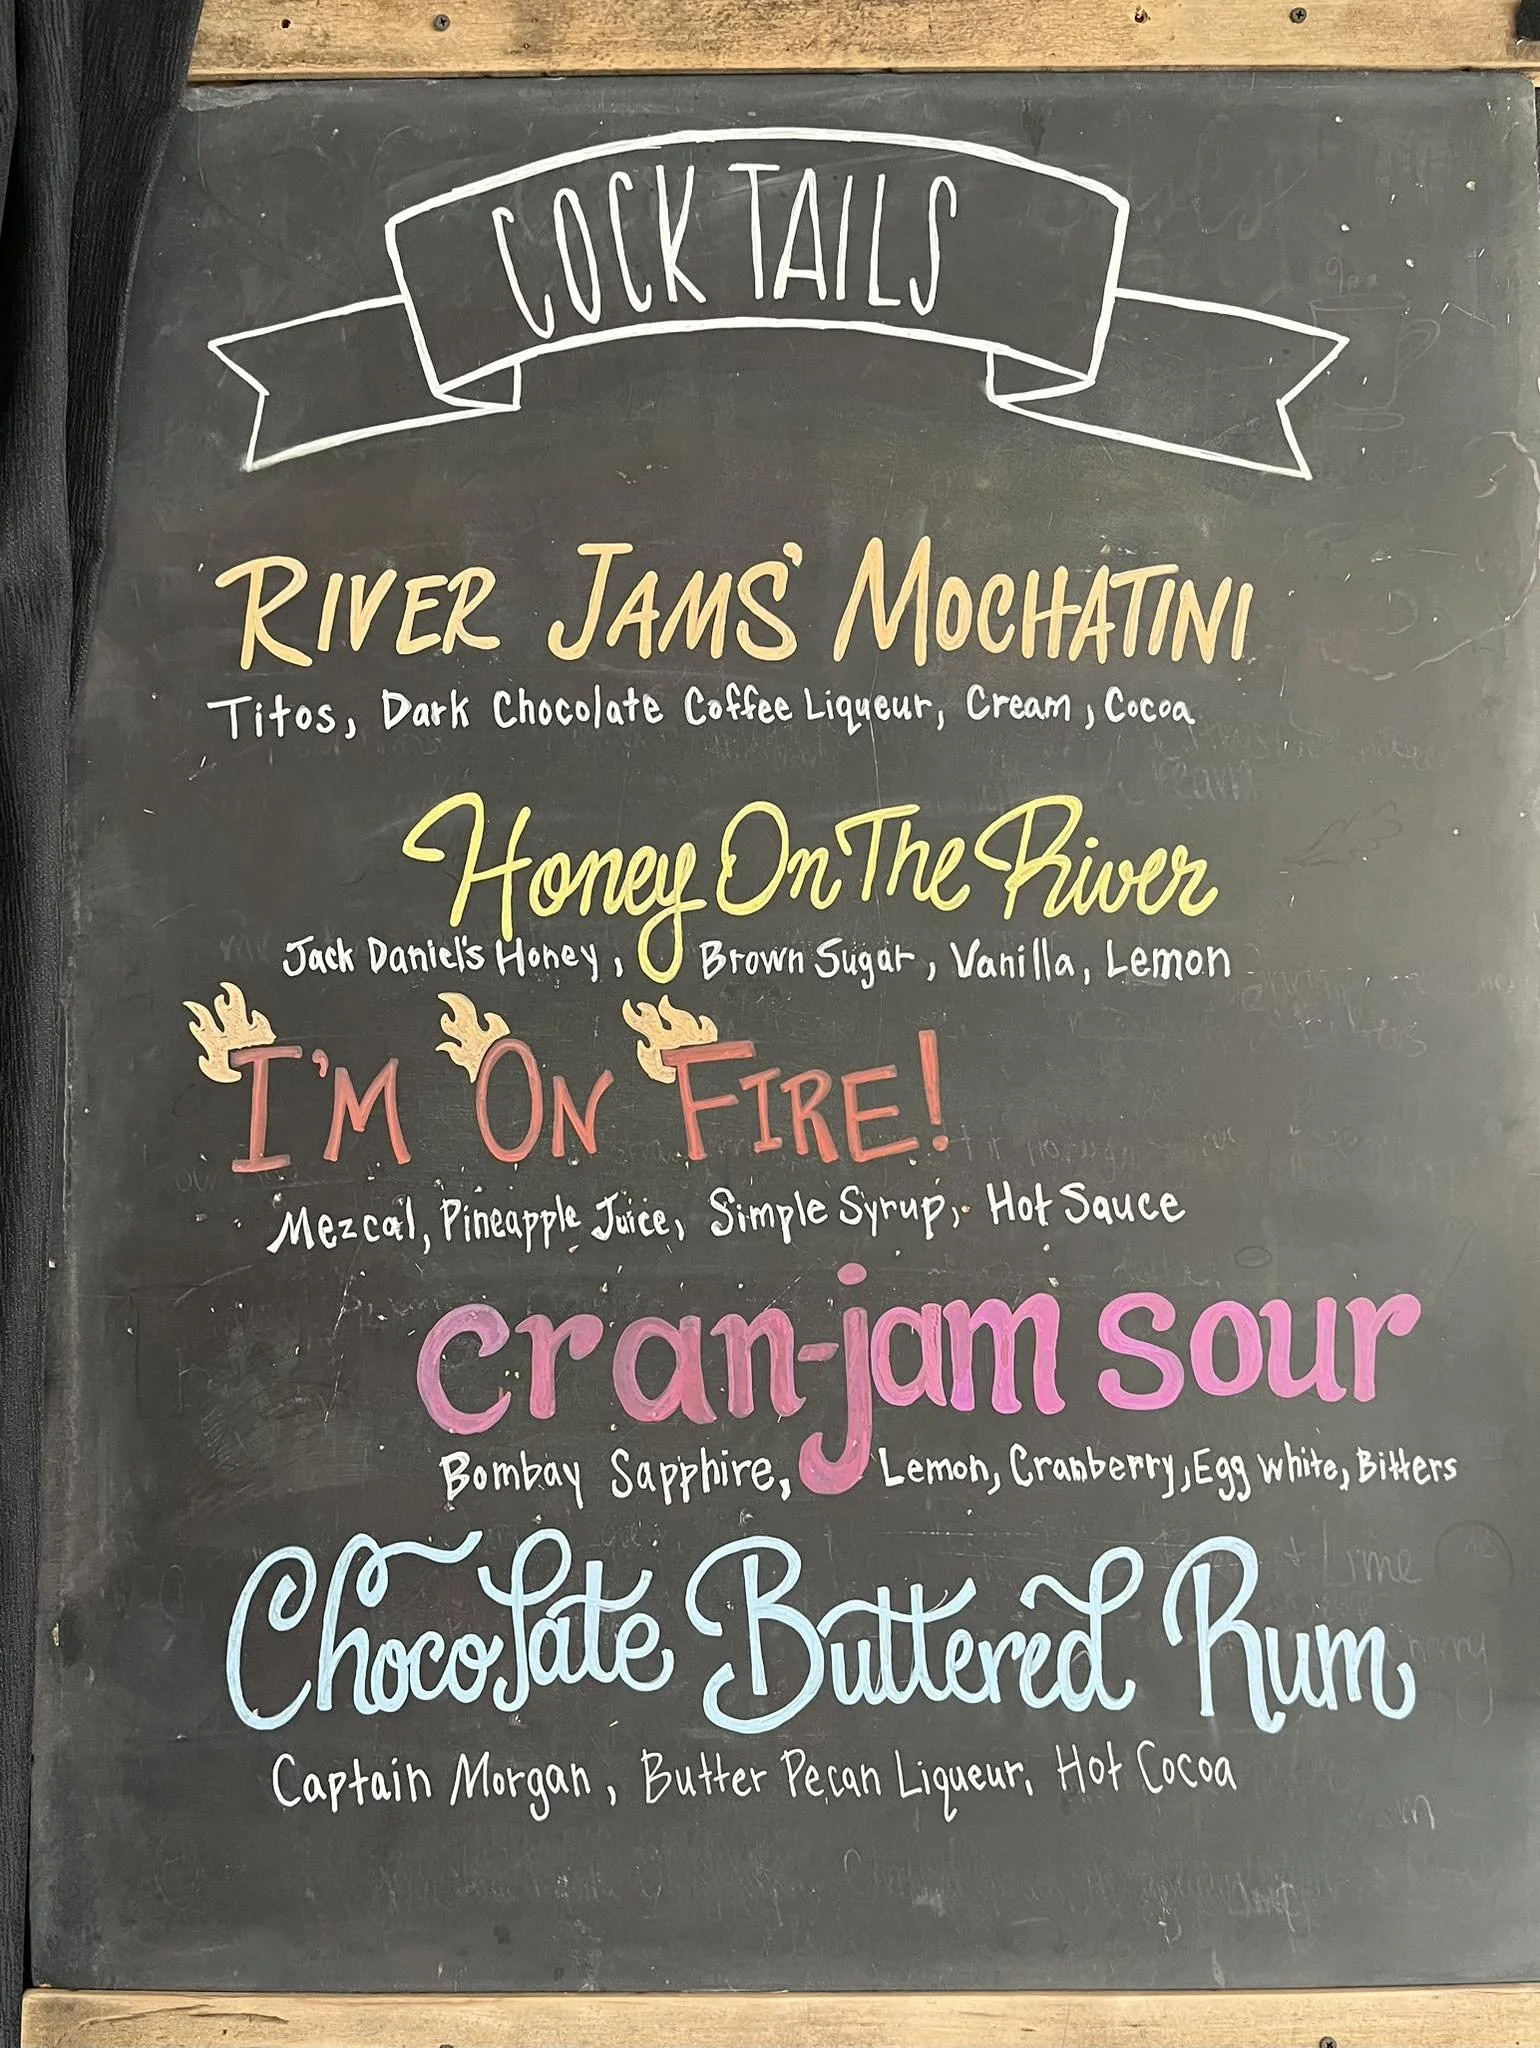 COCKTAILS
RIVER JAMS' MOCHATINI
Titos, Dark Chocolate Coffee Liqueur, Cream, Cocoa
Honey On The River
Jack Daniel's Honey, Brown Sugar, Vanilla, Lemon
I'M ON FIRE!
Mezcal, Pineapple Juice, Simple Syrup, Hot Sauce
cran-jam sour
Bombay Sapphire, Lemon, Cranberry, Egg white, Bitters
Chocolate Buttered Rum
Captain Morgan, Butter Pecan Liqueur, Hot Cocoa